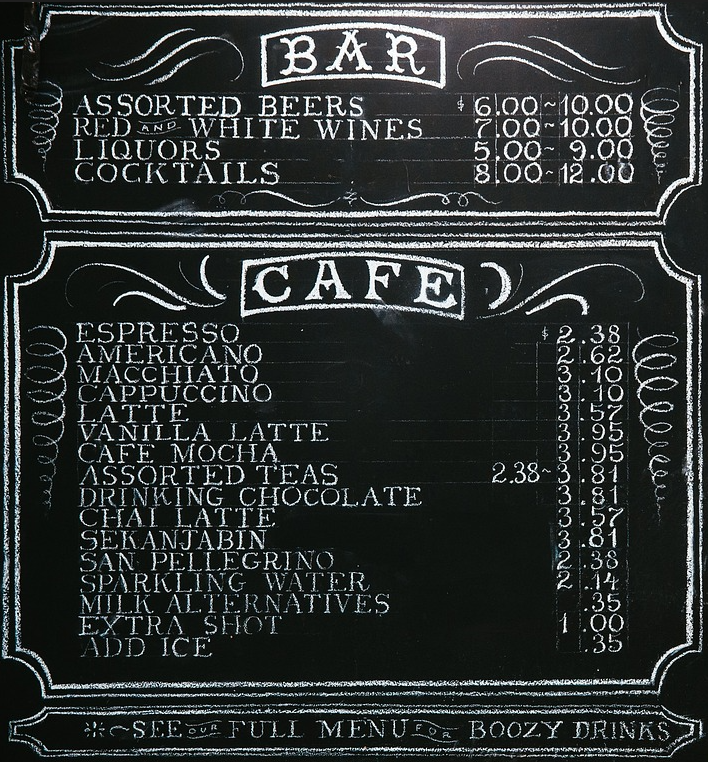 BAR
ASSORTED BEERS $6.00~10.00
RED AND WHITE WINES 7.00~10.00
LIQUORS 5.00~9.00
COCKTAILS 8.00~12.00
CAFE
ESPRESSO $2.38
AMERICANO 2.62
MACCHIATO 3.10
CAPPUCCINO 3.10
LATTE 3.57
VANILLA LATTE 3.95
CAFE MOCHA 3.95
ASSORTED TEAS 2.38~3.81
DRINKING CHOCOLATE 3.81
CHAI LATTE 3.57
SEKANJABIN 3.81
SAN PELLEGRINO 2.38
SPARKLING WATER 2.14
MILK ALTERNATIVES .35
EXTRA SHOT 1.00
ADD ICE .35
*~SEE OUR FULL MENU FOR BOOZY DRINKS